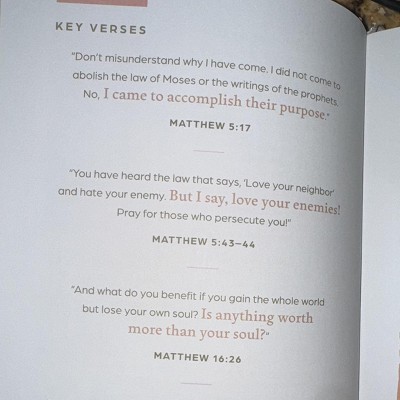 KEY VERSES
"Don't misunderstand why I have come. I did not come to
abolish the law of Moses or the writings of the prophets.
No, I came to accomplish their purpose."
MATTHEW 5:17
"You have heard the law that says, 'Love your neighbor'
and hate your enemy. But I say, love your enemies!
Pray for those who persecute you!"
MATTHEW 5:43–44
"And what do you benefit if you gain the whole world
but lose your own soul? Is anything worth
more than your soul?"
MATTHEW 16:26